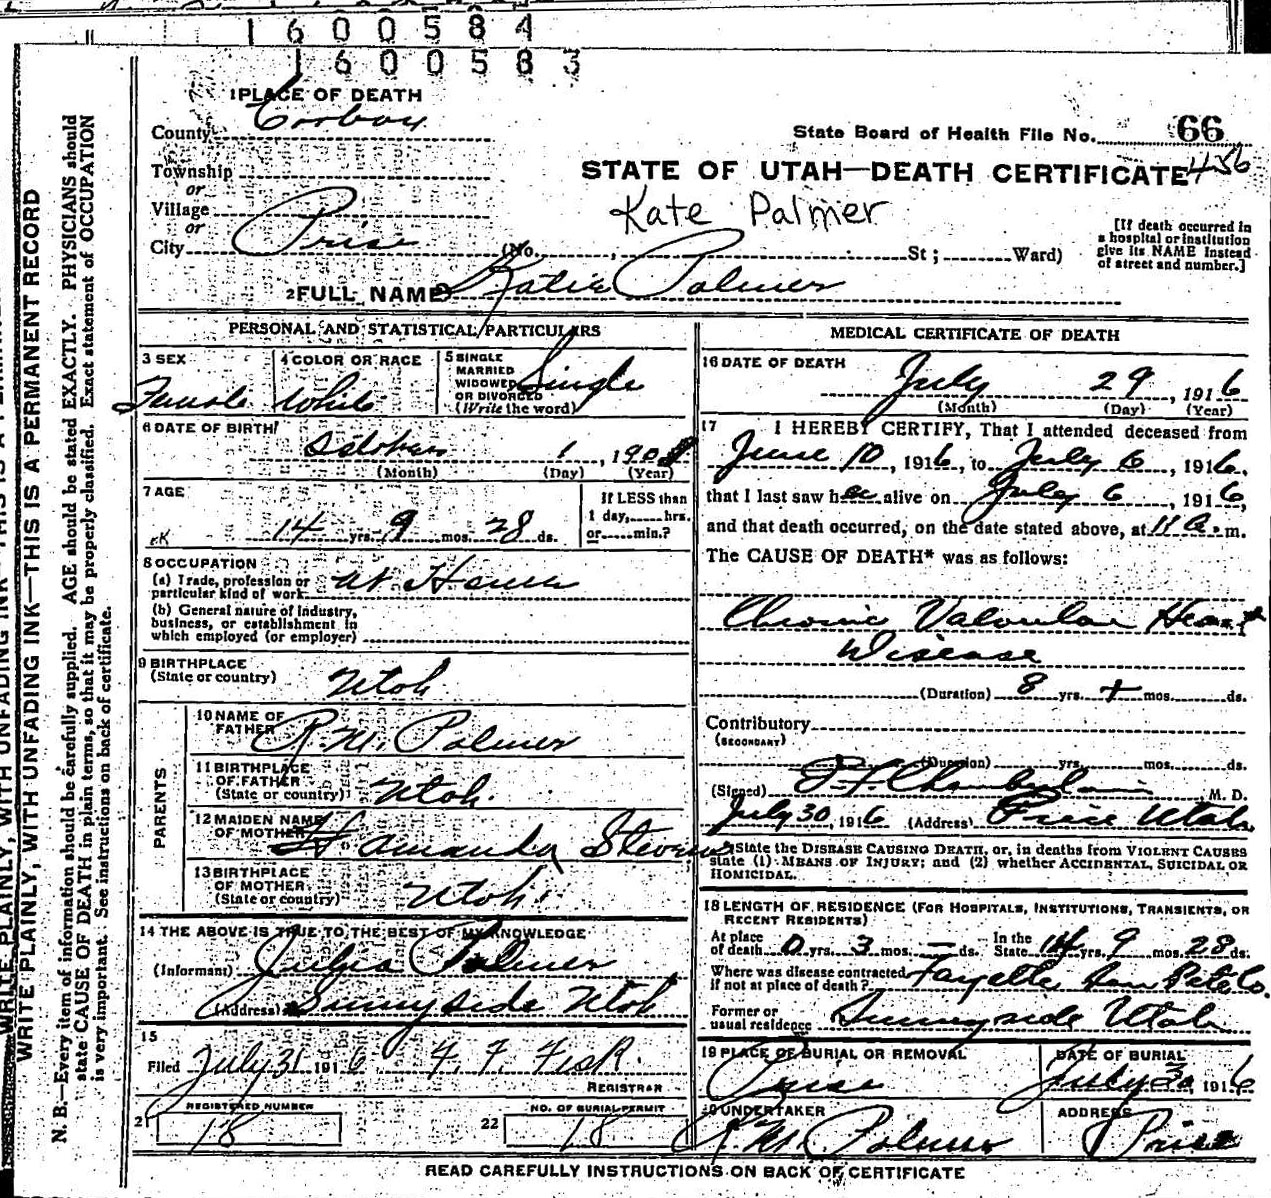 1600584
1600583
1 PLACE OF DEATH
County Carbon
State Board of Health File No. 66
456
Township
or
Village
or
City Price
STATE OF UTAH—DEATH CERTIFICATE
Kate Palmer
(No. , St ; Ward)
[If death occurred in
a hospital or institution
give its NAME instead
of street and number.]
2 FULL NAME Katie Palmer
PERSONAL AND STATISTICAL PARTICULARS
3 SEX Female
4 COLOR OR RACE White
5 SINGLE
MARRIED
WIDOWED
OR DIVORCED
(Write the word)
Single
6 DATE OF BIRTH
1, 190
(Month) (Day) (Year)
7 AGE
14 yrs. 9 mos. 28 ds.
If LESS than
1 day, hrs.
or min.?
8 OCCUPATION
(a) Trade, profession or
particular kind of work at Home
(b) General nature of industry,
business, or establishment in
which employed (or employer)
9 BIRTHPLACE
(State or country) Utah
PARENTS
10 NAME OF
FATHER R. M. Palmer
11 BIRTHPLACE
OF FATHER
(State or country) Utah.
12 MAIDEN NAME
OF MOTHER H Amanda Stevens
13 BIRTHPLACE
OF MOTHER
(State or country) Utah.
14 THE ABOVE IS TRUE TO THE BEST OF MY KNOWLEDGE
(Informant) Palmer
(Address) Sunnyside Utah
15
Filed July 31 1916 F. F. Fisk.
REGISTRAR
REGISTERED NUMBER
21 18
NO. OF BURIAL PERMIT
22 18
MEDICAL CERTIFICATE OF DEATH
16 DATE OF DEATH
July 29, 1916
(Month) (Day) (Year)
17 I HEREBY CERTIFY, That I attended deceased from
June 10, 1916, to July 6, 1916,
that I last saw her alive on July 6, 1916,
and that death occurred, on the date stated above, at 11 a.m.
The CAUSE OF DEATH* was as follows:
Chronic Valvular Heart
Disease
(Duration) 8 yrs. + mos. ds.
Contributory
(SECONDARY)
(Duration) yrs. mos. ds.
(Signed) Chamberlain, M. D.
July 30, 1916 (Address) Price Utah
State the DISEASE CAUSING DEATH, or, in deaths from VIOLENT CAUSES
state (1) MEANS OF INJURY; and (2) whether ACCIDENTAL, SUICIDAL OR
HOMICIDAL.
18 LENGTH OF RESIDENCE (FOR HOSPITALS, INSTITUTIONS, TRANSIENTS, OR
RECENT RESIDENTS)
At place
of death 0 yrs. 3 mos. — ds. In the
State 14 yrs. 9 mos. 28 ds.
Where was disease contracted
if not at place of death? Fayette San Pete Co.
Former or
usual residence Sunnyside Utah
19 PLACE OF BURIAL OR REMOVAL
Price
DATE OF BURIAL
July 30 1916
20 UNDERTAKER
R. M. Palmer
ADDRESS
Price
READ CAREFULLY INSTRUCTIONS ON BACK OF CERTIFICATE
WRITE PLAINLY, WITH UNFADING INK—THIS IS A PERMANENT RECORD
N. B.—Every item of information should be carefully supplied. AGE should be stated EXACTLY. PHYSICIANS should
state CAUSE OF DEATH in plain terms, so that it may be properly classified. Exact statement of OCCUPATION
is very important. See instructions on back of certificate.